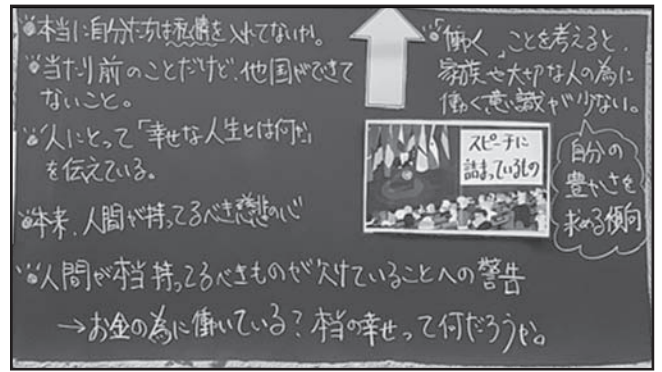 本当に自分たちは私情を入れてないか。
当たり前のことだけど、他国ができて
ないこと。
人にとって「幸せな人生とは何か」
を伝えている。
本来、人間が持ってるべき慈悲の心
人間が本当持ってるべきものが欠けていることへの警告
→お金の為に働いている？本当の幸せって何だろうか。
「働く」ことを考えると、
家族や大切な人の為に
働く意識が少ない。
スピーチに
詰まっているもの
自分の
豊かさを
求める傾向